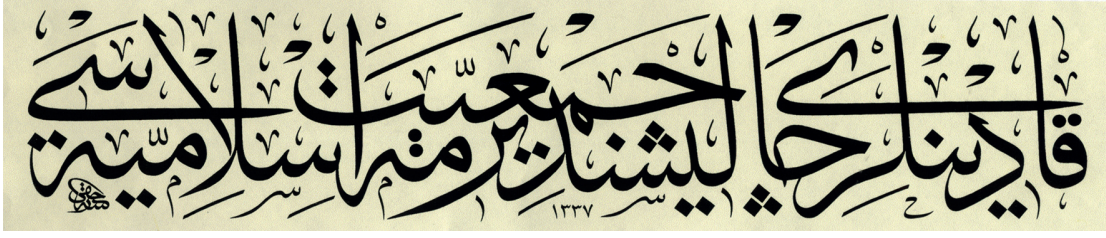 قادینلری چالیشدیرمه جمعیت اسلامیه‌سی
١٣٣٧